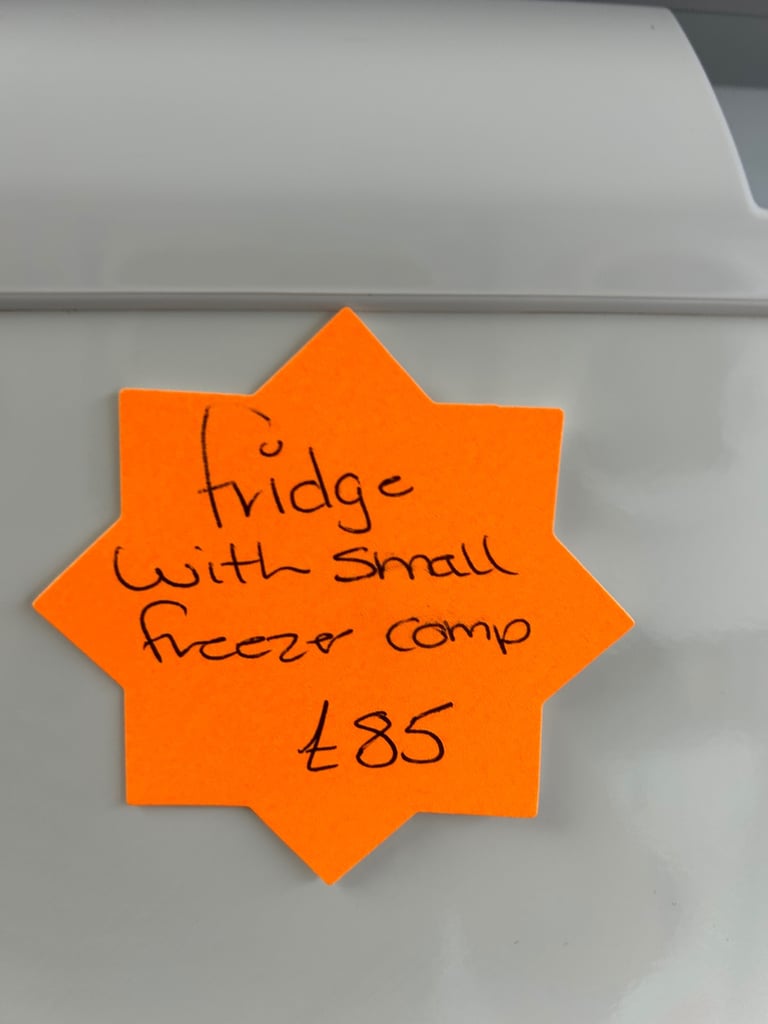 fridge
with small
freezer comp
£85